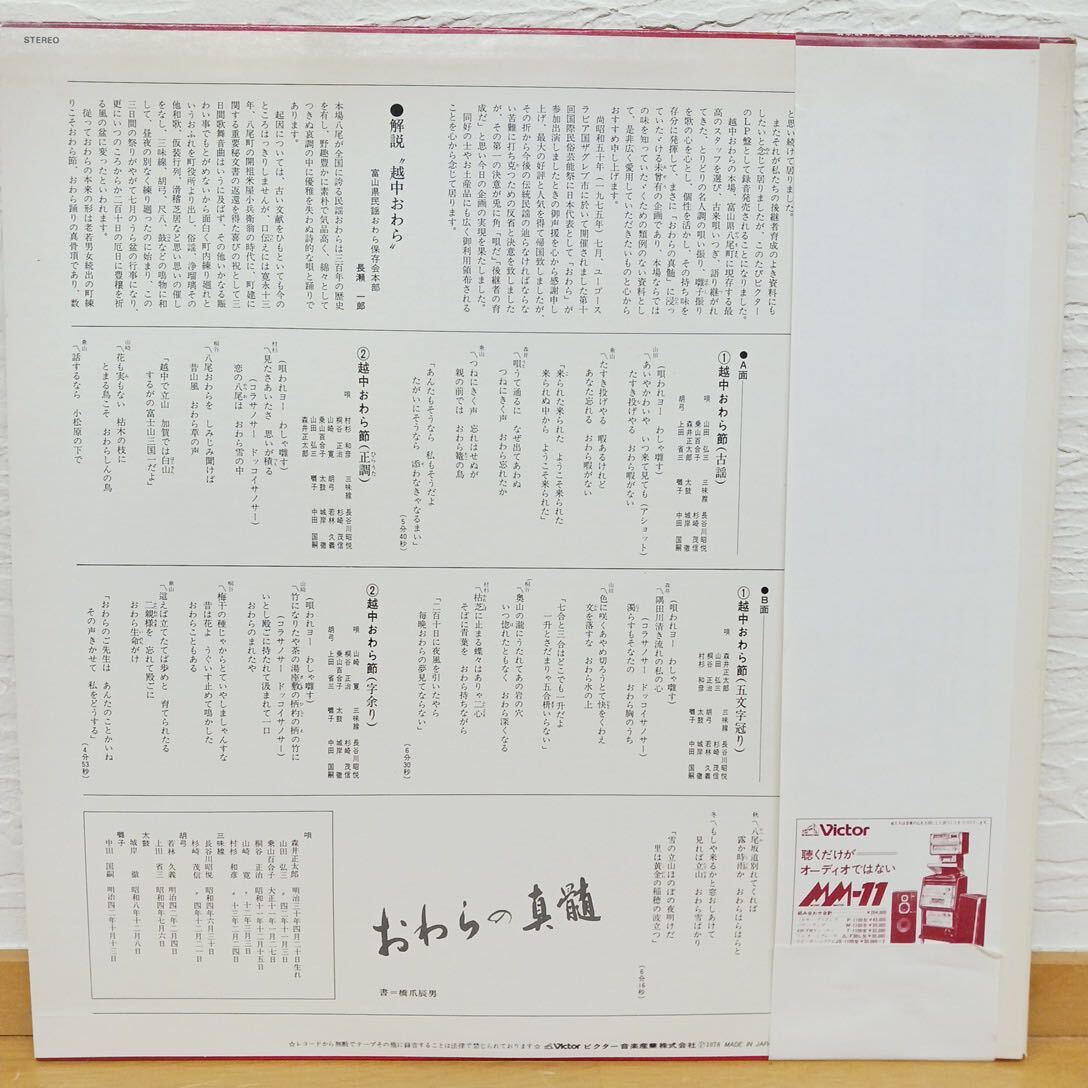 STEREO
と思い続けて居りました。
またそれが私たちの後継者育成のよき資料にも
したいと念じて居りましたが、このたびビクター
のLP盤として録音発売されることになりました。
越中おわらの本場、富山県八尾町に現存する最
高のスタッフを選び、古来唄いつぎ、語り継がれ
てきた、とりどりの名人調の唄い振り、囃子振り
を歌の心を心とし、個性を活かし、その持ち味を
存分に発揮して、まさに「おわらの真髄」に浸っ
ていたゞける未曽有の企画であり、本場ならでは
の味を知っていたゞくための類例のない資料とし
て、是非広く愛用していただきたいものと心から
おすすめ申し上げます。
尚昭和五十年(一九七五年)七月、ユーゴース
ラビア国ザグレブ市に於いて開催されました第十
回国際民俗芸能祭に日本代表として「おわら」が
参加出演しましたときの御声援を心から感謝申し
上げ、最大の好評と人気を得て帰国致しましたが、
その折から今後の伝統民謡の辿らなければならな
い苦難に打ち克つための反省と決意を致しました
が、その第一の決意が兎に角「唄だ」「後継者の育
成だ」と思い今日の企画の実現を果たしました。
同好の士やお土産品にも広く御利用領布される
ことを心から念じて居ります。
●解説 “越中おわら”
富山県民謡おわら保存会本部
長瀬 一郎
本場八尾が全国に誇る民謡おわらは三百年の歴史
を有し、野趣豊かに素朴で気品高く、綿々として
つきぬ哀調の中に優雅を失わぬ詩的な唄と踊りで
あります。
起因については、古い文献をひもといても今の
ところはっきりしませんが、口伝えには寛永十三
年、八尾町の開祖米屋小兵衛翁の時代に、町建に
関する重要秘文書の返還を得た喜びの祝として三
日間歌舞音曲はいうに及ばず、その他いかなる賑
わい事でもとがめないから面白く町内練り廻れと
いうおふれを町役所より出し、俗謡、浄瑠璃その
他和歌、仮装行列、滑稽芝居など思い思いの催し
をなし、三味線、胡弓、尺八、鼓などの鳴物に和
して、昼夜の別なく練り廻ったのに始まり、この
三日間の祭りがやがて七月のうら盆の行事になり、
更にいつのころからか二百十日の厄日に豊穰を祈
る風の盆に変ったといわれています。
従っておわらの本来の形は老若男女続出の町練
りこそおわら節、おわら踊りの真骨頂であり、数
●A面
①越中おわら節(古謡)
唄 山田 弘三
森井正太郎
胡弓 上田 省三
三味線 長谷川昭悦
杉崎 茂信
囃子 中田 国嗣
(唄われヨー わしゃ囃す)
山田 〽あいやかわいや いつ来て見ても(アショット)
たすき投げやる おわら暇がない
乗山 〽たすき投げやる 暇あるけれど
あなた忘れる おわら暇がない
「来られた来られた ようこそ来られた
来られぬ中から ようこそ来られた」
森井 〽唄うて通るに なぜ出てあわぬ
つねにきく声 おわら忘れたか
乗山 〽つねにきく声 忘れはせぬが
親の前では おわら篭の鳥
「あんたもそうなら 私もそうだよ
たがいにそうなら 添わなきゃなるまい」
(5分40秒)
②越中おわら節(正調)
ひらうた
唄 村杉 和彦
桐谷 正治
山崎 寛
乗山百合子
山田 弘三
森井正太郎
三味線 長谷川昭悦
杉崎 茂信
胡弓 若林 久義
太鼓 城岸 徹
囃子 中田 国嗣
(唄われヨー わしゃ囃す)
村杉 〽見たさあいたさ 思いが積る
(コラサノサー ドッコイサノサー)
恋の八尾は おわら雪の中
桐谷 〽八尾おわらを しみじみ聞けば
昔山風 おわら草の声
「越中で立山 加賀では白山
するがの富士山三国一だよ」
山崎 〽花も実もない 枯木の枝に
とまる鳥こそ おわらしんの鳥
乗山 〽話するなら 小松原の下で
●B面
①越中おわら節(五文字冠り)
唄 森井正太郎
山田 弘三
桐谷 正治
村杉 和彦
三味線 長谷川昭悦
杉崎 茂信
胡弓 若林 久義
太鼓 城岸 徹
囃子 中田 国嗣
(唄われヨー わしゃ囃す)
森井 〽隅田川清き流れの私の心
(コラサノサー ドッコイサノサー)
濁らすもそなたの おわら胸のうち
山田 〽色に咲くあやめ切ろうとて快をくわえ
文を落すな おわら水の上
「七合と三合はどこでも一升だよ
一升とさだまりゃ五合枡いらない」
桐谷 〽奥山の瀧にうたれてあの岩の穴
いつ惚れたともなく おわら深くなる
村杉 〽枯芝に止まる蝶々はありゃ二心
そばに青葉を おわら持ちながら
「二百十日に夜風を引いたやら
毎晩おわらの夢見てならない」
(6分30秒)
②越中おわら節(字余り)
唄 山崎 寛
桐谷 正治
乗山百合子
胡弓 上田 省三
三味線 長谷川昭悦
杉崎 茂信
太鼓 城岸 徹
囃子 中田 国嗣
(唄われヨー わしゃ囃す)
山崎 〽竹になりたや茶の湯座敷の柄杓の柄の竹に
(コラサノサー ドッコイサノサー)
いとし殿ごに持たれて汲まれて一口
おわらのまれたや
桐谷 〽梅干の種じゃからとていやしましゃんすな
昔は花よ うぐいす止めて鳴かした
おわらこともある
乗山 〽這えば立てたてば歩めと 育てられたる
二親様を 忘れて殿ごに
おわら生命がけ
「おわらのご先生は あんたのことかいね
その声きかせて 私をどうする」
(4分53秒)
秋 〽八尾坂道別れてくれば
露か時雨か おわらはらはらと
冬 〽もしや来るかと窓おしあけて
見れば立山 おわら雪ばかり
「雪の立山ほのぼの夜明けだ
里は黄金の稲穂の波立つ」
(6分16秒)
おわらの真髄
書=橋爪辰男
唄
森井正太郎 明治三十年四月二十日生れ
山田 弘三 〃 四二年十二月三十日
乗山百合子 大正十一年一月二七日
桐谷 正治 昭和十一年十二月十五日
山崎 寛 〃 十二年三月三日
村杉 和彦 〃 十三年二月二四日
三味線
長谷川昭悦 昭和四年六月三十日
杉崎 茂信 〃 四年十二月二一日
胡弓
若林 久義 明治四二年二月四日
上田 省三 昭和四年七月六日
太鼓
城岸 徹 昭和八年十二月八日
囃子
中田 国嗣 明治四二年十月十三日
☆レコードから無断でテープその他に録音することは法律で禁じられております☆ Victor ビクター音楽産業株式会社 Ⓟ1976 MADE IN JAPA
Victor
聴くだけが
オーディオではない
MM-11